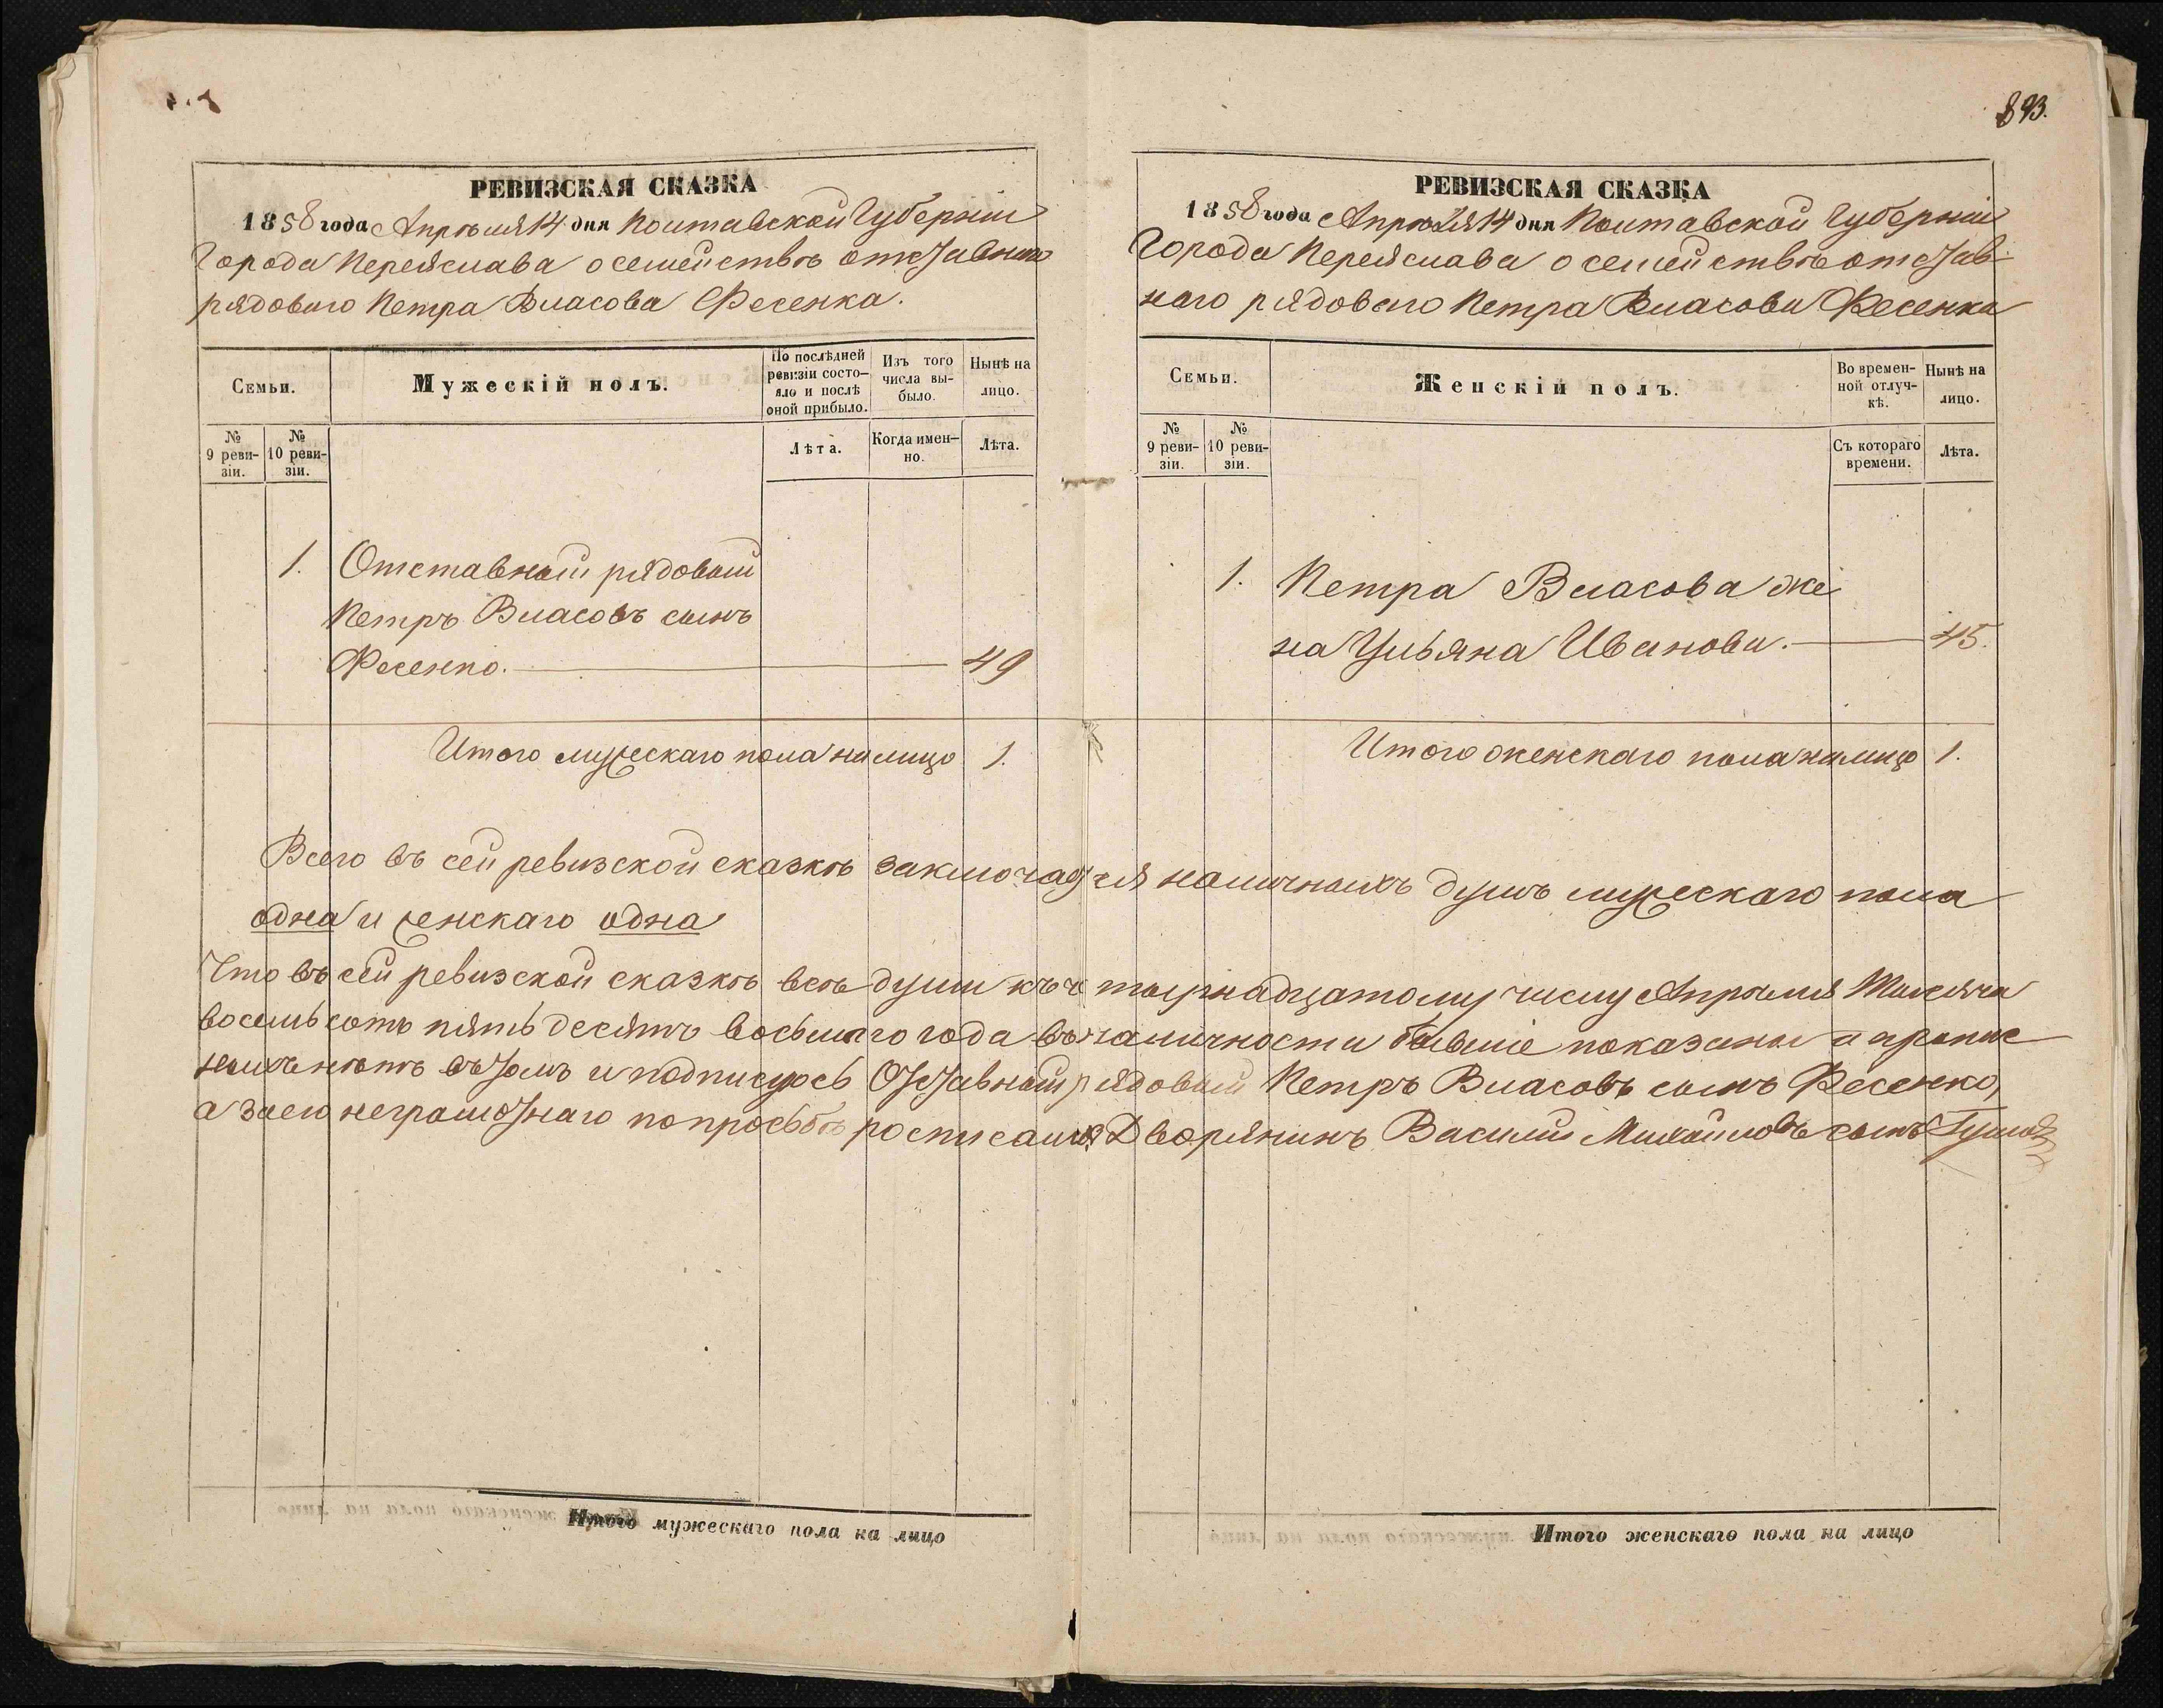 893.
РЕВИЗСКАЯ СКАЗКА
1858 года Апрѣля 14 дня Полтавской Губерніи
Города Переяслава о семействѣ отставнаго
рядоваго Петра Власова Фесенка.
Семьи.
Мужескій полъ.
По послѣдней ревизіи состо-яло и послѣ оной прибыло.
Изъ того числа вы-было.
Нынѣ на лицо.
№ 9 реви-зіи.
№ 10 реви-зіи.
Лѣта.
Когда имен-но.
Лѣта.
1. Отставный рядовый
Петръ Власовъ сынъ
Фесенко. 49
Итого мужескаго пола на лицо 1.
РЕВИЗСКАЯ СКАЗКА
1858 года Апрѣля 14 дня Полтавской Губерніи
Города Переяслава о семействѣ отстав-
наго рядоваго Петра Власова Фесенка
Семьи.
Женскій полъ.
Во времен-ной отлуч-кѣ.
Нынѣ на лицо.
№ 9 реви-зіи.
№ 10 реви-зіи.
Съ котораго времени.
Лѣта.
1. Петра Власова же
на Ульяна Иванова. 45.
Итого женскаго пола на лицо 1.
Всего въ сей ревизской сказкѣ заключается наличныхъ душъ мужескаго пола
одна и женскаго одна
Что въ сей ревизской сказкѣ всѣ души къ четырнадцатому числу Апрѣля Мѣсяца
восемьсотъ пятьдесятъ восьмаго года въ наличности бывшіе показаны и
нѣтъ въ томъ и подписуюсь Отставный рядовый Петръ Власовъ сынъ Фесенко,
а за его неграмотнаго по просьбѣ росписался Дворянинъ Василій Михайловъ сынъ
Итого мужескаго пола на лицо
Итого женскаго пола на лицо